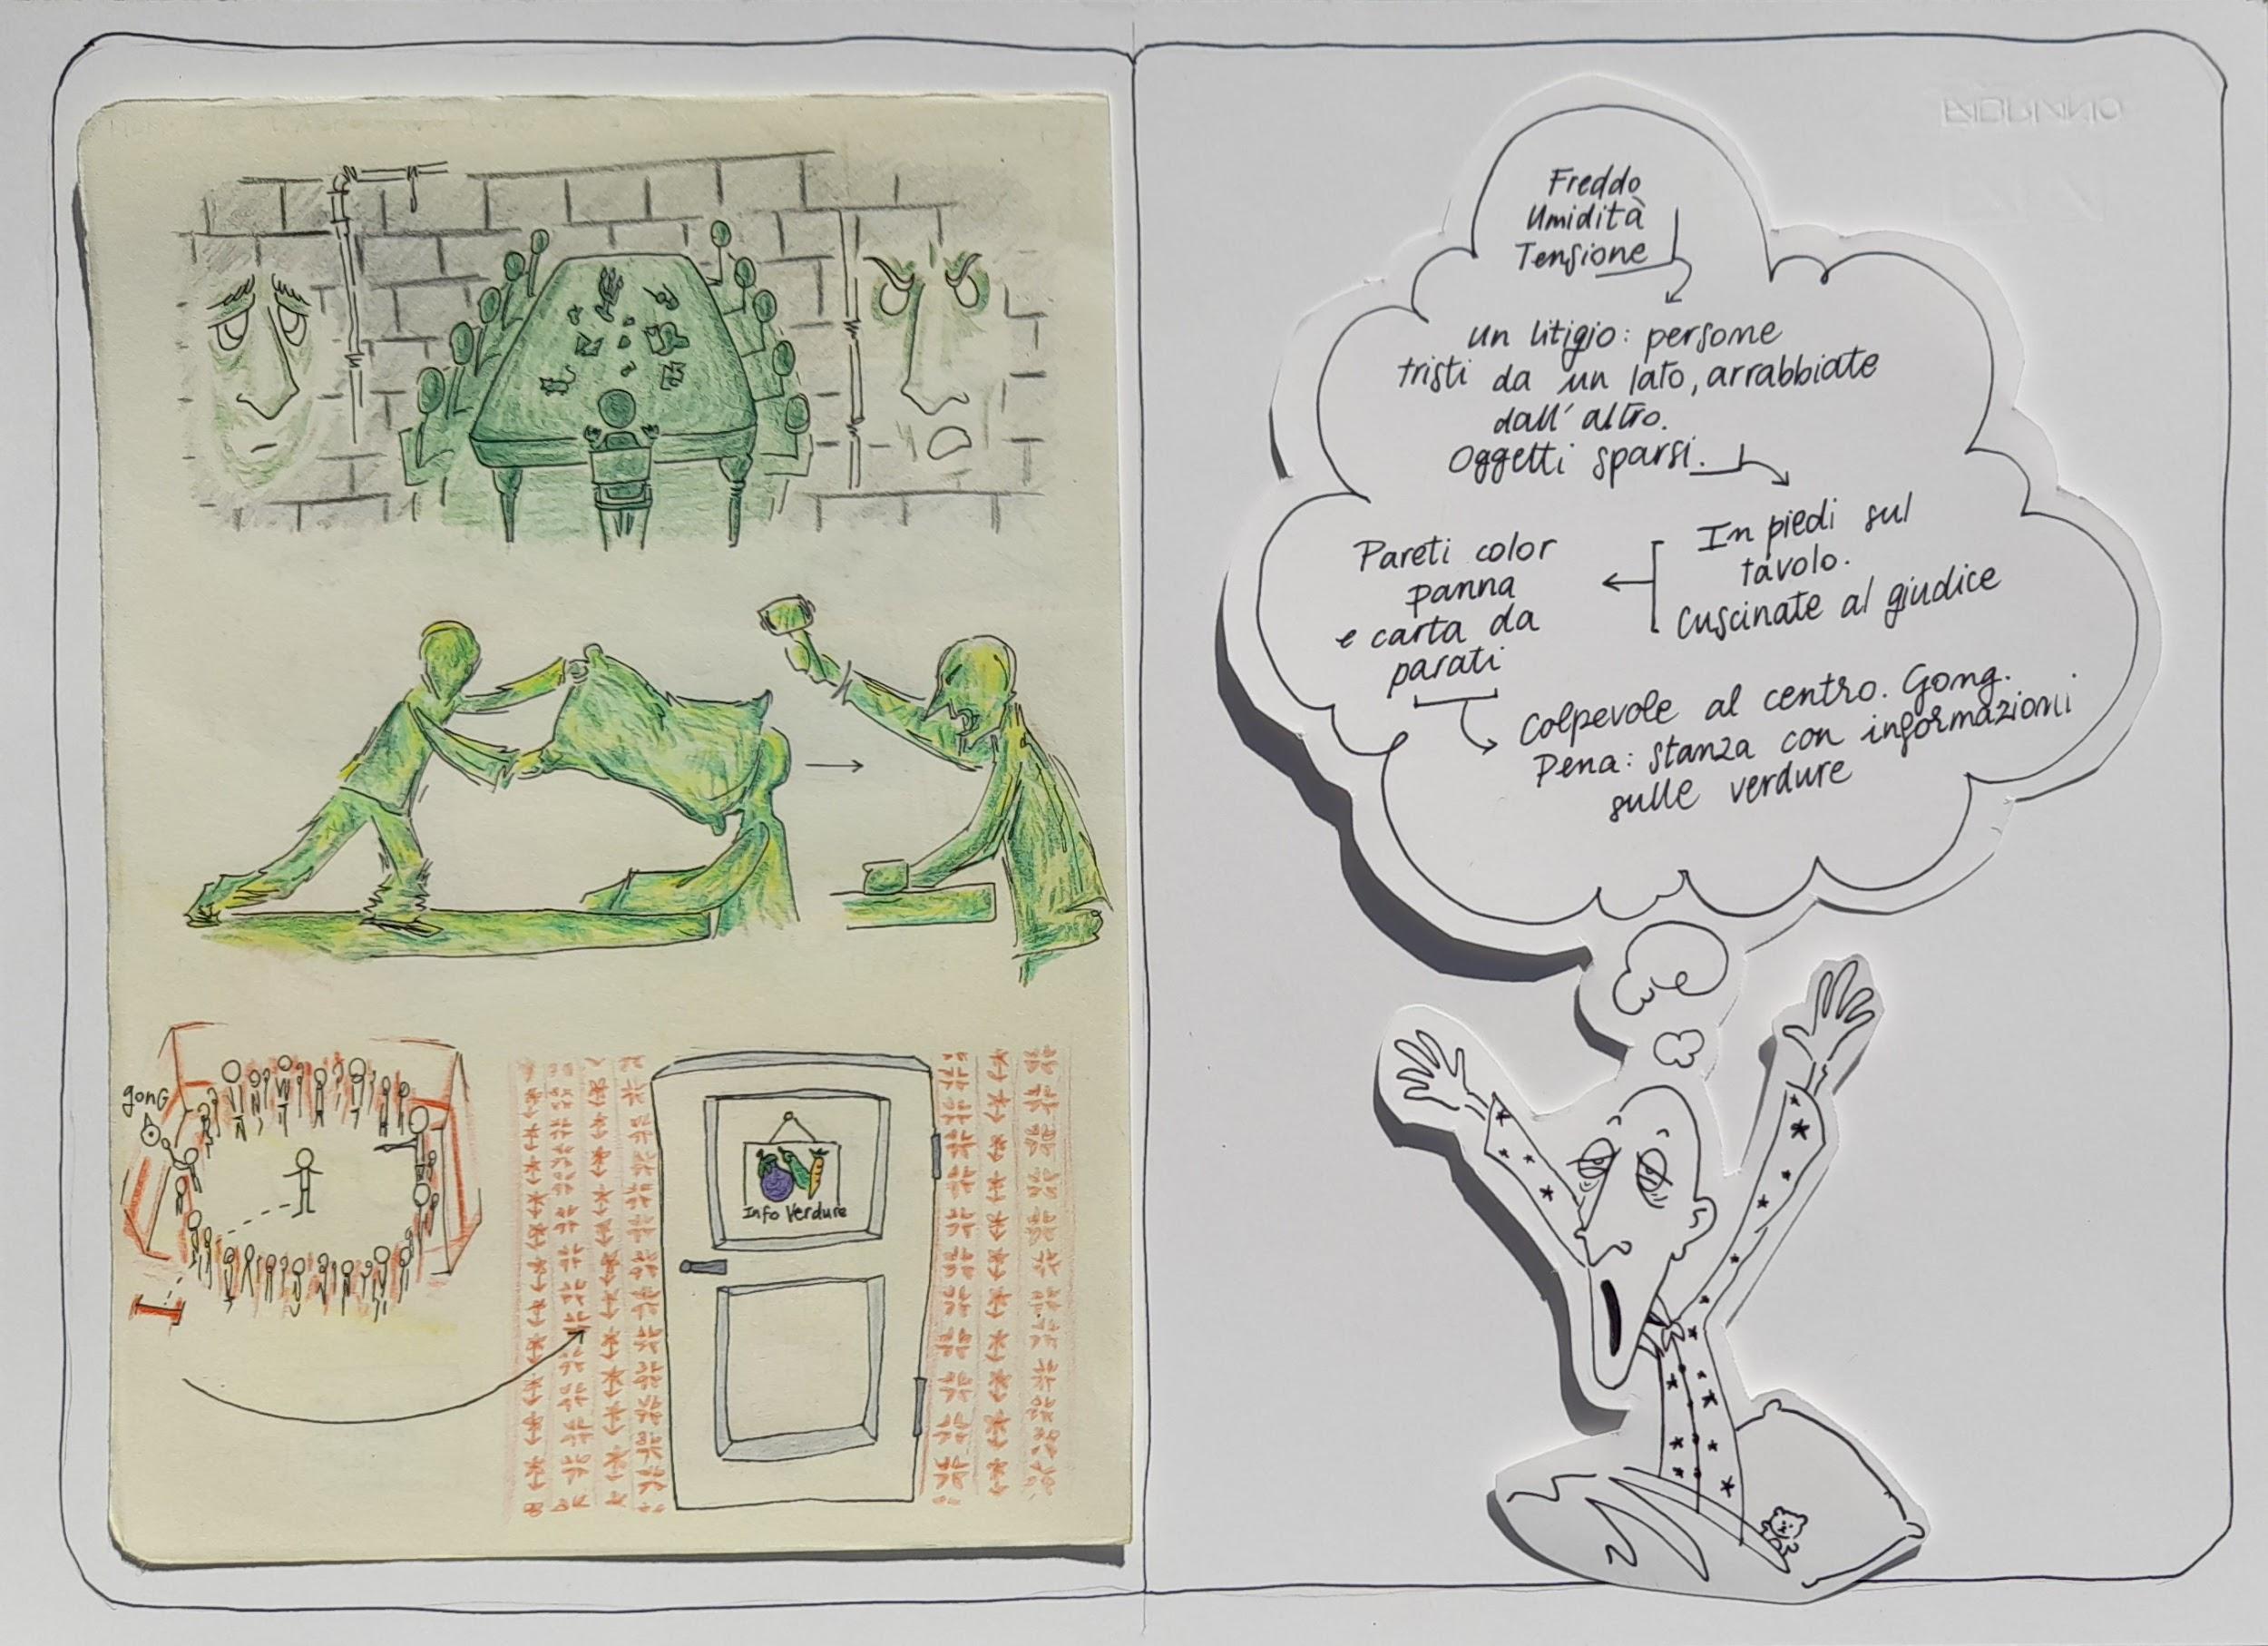 gong
Info Verdure
Freddo
Umidità
Tensione
un litigio: persone
tristi da un lato, arrabbiate
dall'altro.
Oggetti sparsi.
In piedi sul
tavolo.
Cuscinate al giudice
Pareti color
panna
e carta da
parati
Colpevole al centro. Gong.
Pena: stanza con informazioni
sulle verdure